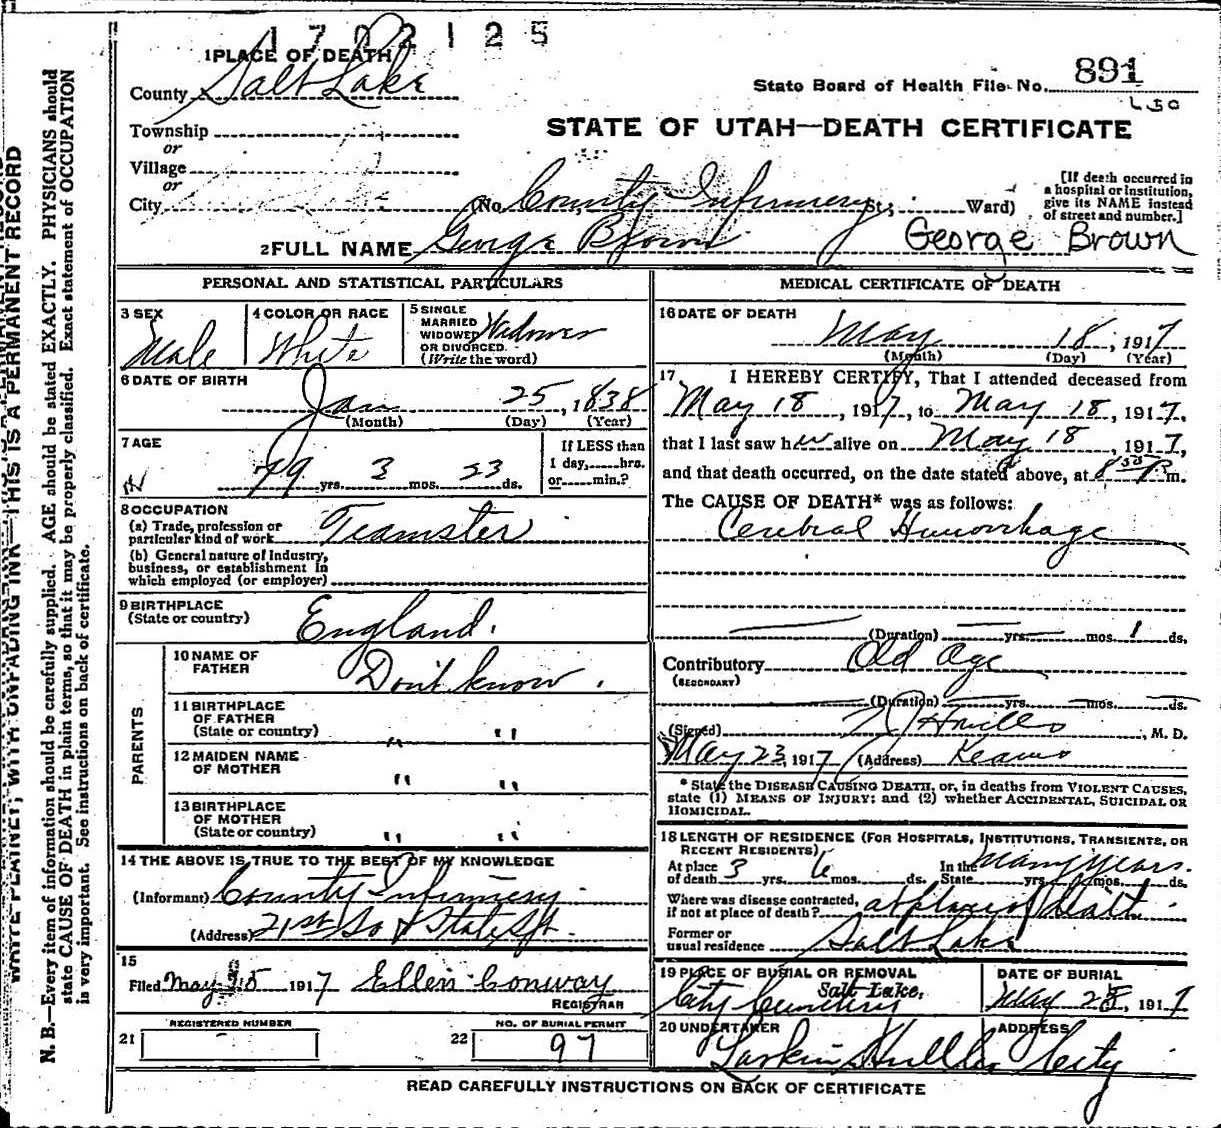 1702125
1 PLACE OF DEATH
County Salt Lake
State Board of Health File No. 891
STATE OF UTAH—DEATH CERTIFICATE
Township
or
Village
or
City (No. County Infirmery St.; Ward)
[If death occurred in a hospital or institution, give its NAME instead of street and number.]
2 FULL NAME George Brown George Brown
PERSONAL AND STATISTICAL PARTICULARS
3 SEX
Male
4 COLOR OR RACE
White
5 SINGLE
MARRIED
WIDOWED
OR DIVORCED
(Write the word)
Widower
6 DATE OF BIRTH
Jan 25, 1838
(Month) (Day) (Year)
7 AGE
79 yrs. 3 mos. 23 ds.
If LESS than
1 day, hrs.
or min.?
8 OCCUPATION
(a) Trade, profession or
particular kind of work Teamster
(b) General nature of Industry,
business, or establishment in
which employed (or employer)
9 BIRTHPLACE
(State or country) England.
PARENTS
10 NAME OF
FATHER Don't know.
11 BIRTHPLACE
OF FATHER
(State or country) " "
12 MAIDEN NAME
OF MOTHER " "
13 BIRTHPLACE
OF MOTHER
(State or country) " "
14 THE ABOVE IS TRUE TO THE BEST OF MY KNOWLEDGE
(Informant) County Infirmery
(Address) 21st So & State St.
15
Filed May 25 1917 Ellen Conway
REGISTRAR
21 REGISTERED NUMBER
22 NO. OF BURIAL PERMIT
97
MEDICAL CERTIFICATE OF DEATH
16 DATE OF DEATH
May 18, 1917
(Month) (Day) (Year)
17 I HEREBY CERTIFY, That I attended deceased from
May 18, 1917, to May 18, 1917,
that I last saw him alive on May 18, 1917,
and that death occurred, on the date stated above, at 8 30 P m.
The CAUSE OF DEATH* was as follows:
Cerebral Hemorrhage
(Duration) yrs. mos. 1 ds.
Contributory Old Age
(SECONDARY)
(Duration) yrs. mos. ds.
(Signed) , M. D.
May 23, 1917 (Address) Kearns
* State the DISEASE CAUSING DEATH, or, in deaths from VIOLENT CAUSES,
state (1) MEANS OF INJURY; and (2) whether ACCIDENTAL, SUICIDAL OR
HOMICIDAL.
18 LENGTH OF RESIDENCE (FOR HOSPITALS, INSTITUTIONS, TRANSIENTS, OR
RECENT RESIDENTS)
At place
of death 3 yrs. 6 mos. ds. In the
State many years. yrs. mos. ds.
Where was disease contracted,
if not at place of death? at place of death
Former or
usual residence Salt Lake
19 PLACE OF BURIAL OR REMOVAL
Salt Lake.
City Cemetery
DATE OF BURIAL
May 28, 1917
20 UNDERTAKER
Larkin Hull
ADDRESS
City
READ CAREFULLY INSTRUCTIONS ON BACK OF CERTIFICATE
WRITE PLAINLY, WITH UNFADING INK—THIS IS A PERMANENT RECORD
N. B.—Every item of information should be carefully supplied. AGE should be stated EXACTLY. PHYSICIANS should
state CAUSE OF DEATH in plain terms, so that it may be properly classified. Exact statement of OCCUPATION
is very important. See instructions on back of certificate.